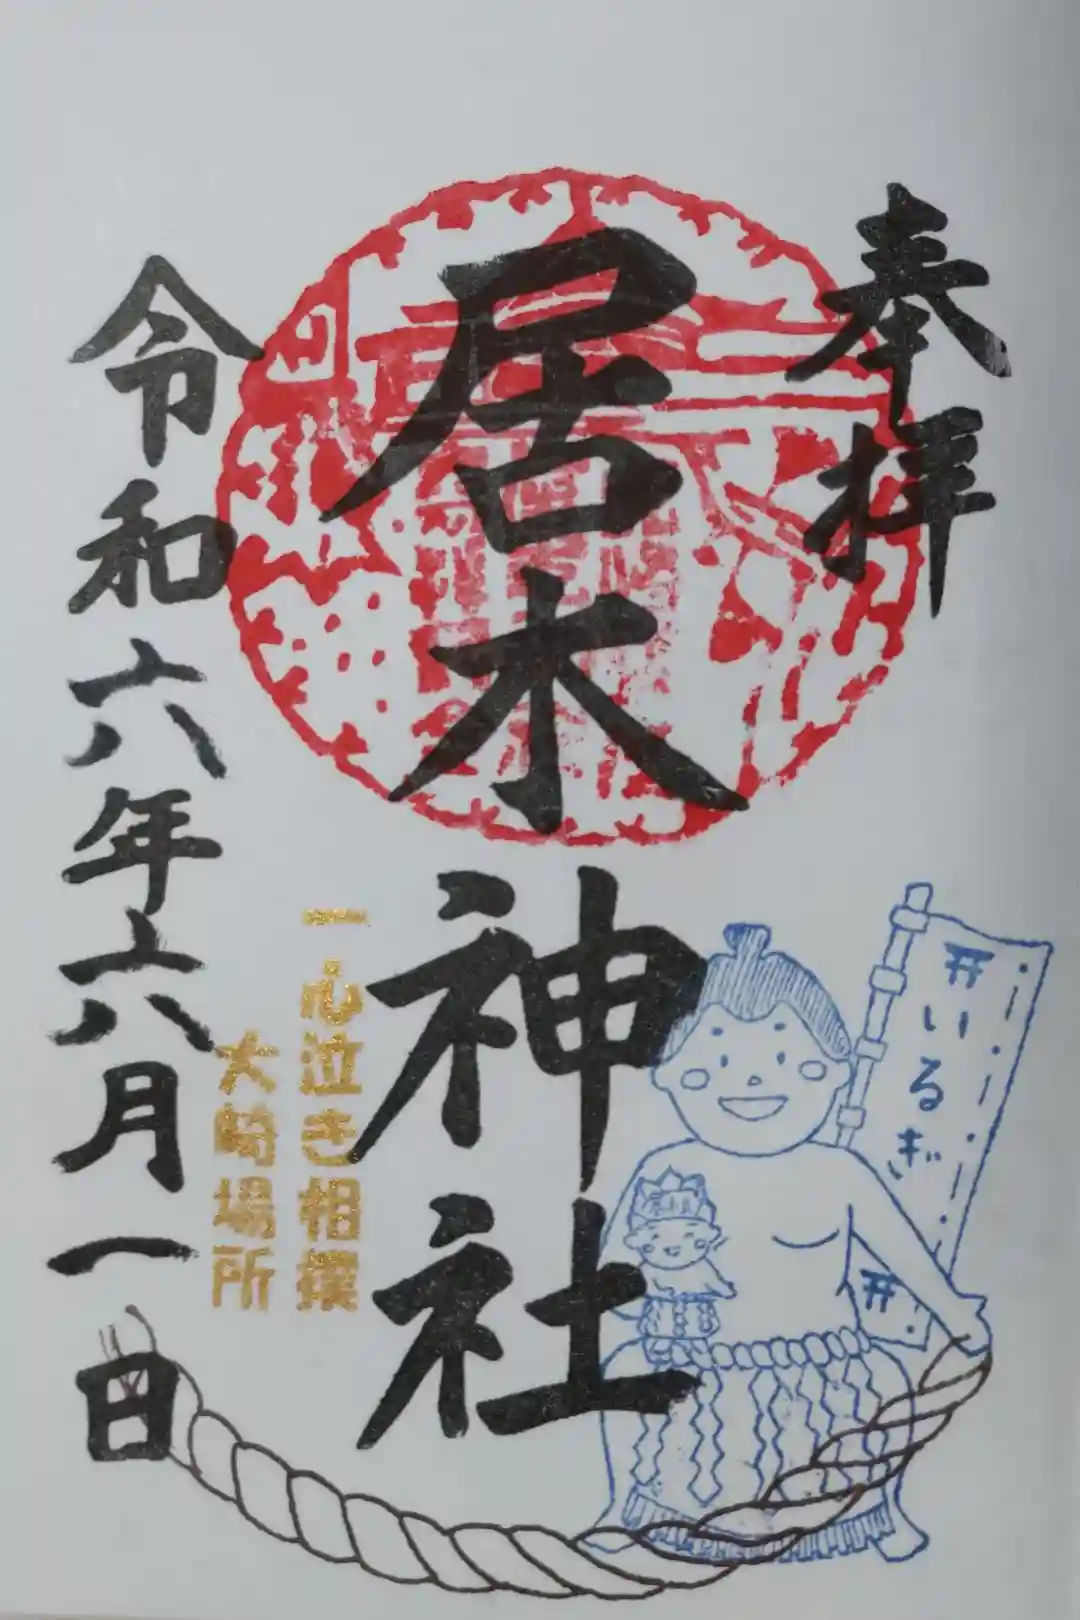 奉拝
居木神社
一心泣き相撲
大崎場所
令和六年六月一日
いるぎ